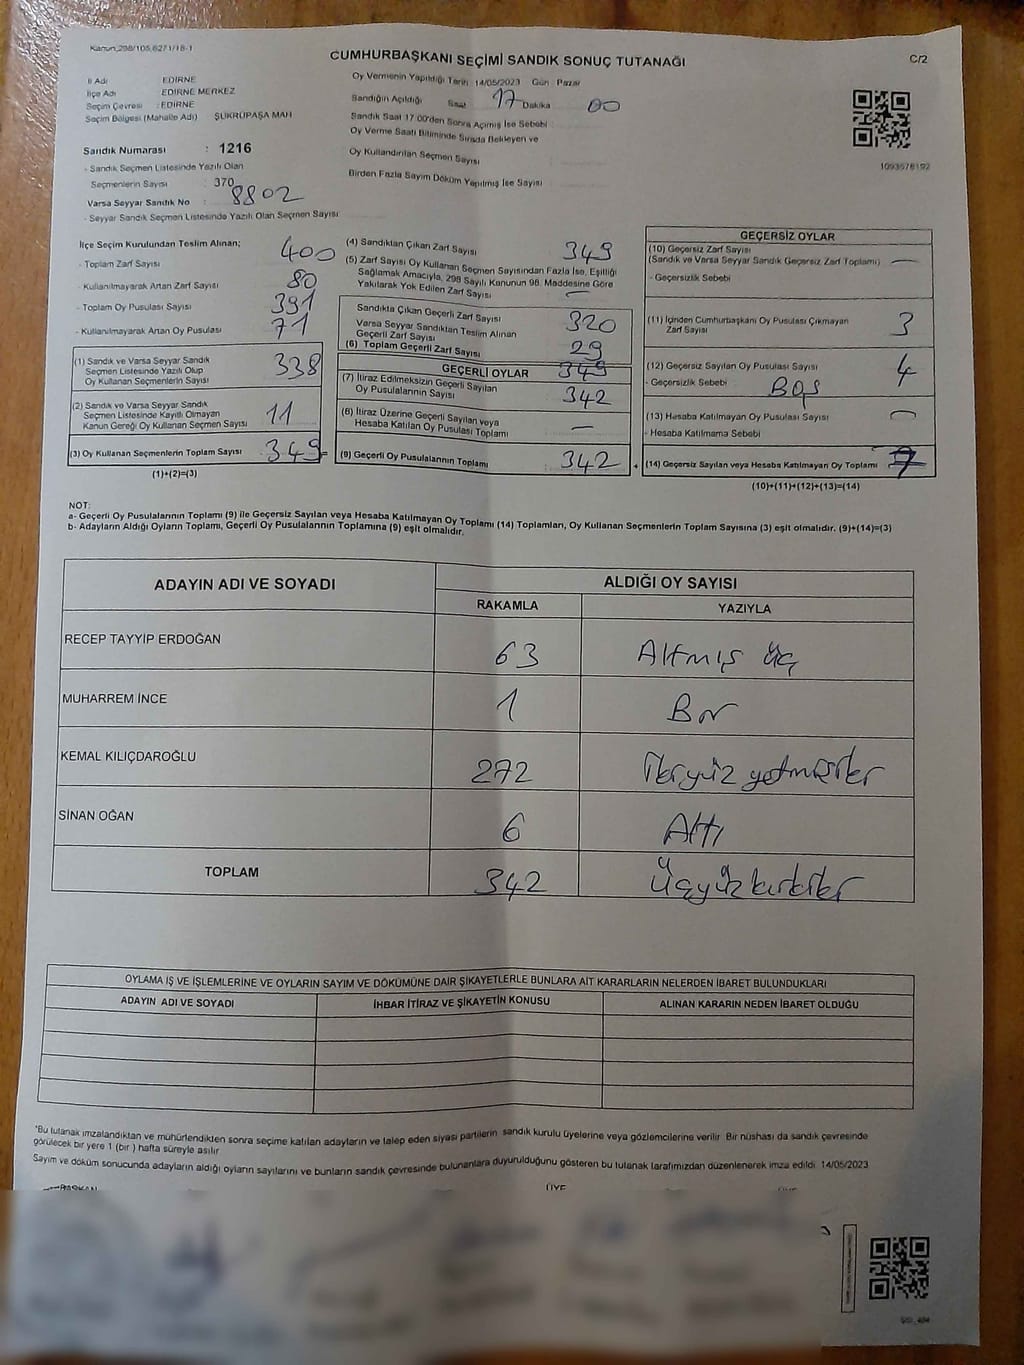 Kanun_298/105,6271/18-1
CUMHURBAŞKANI SEÇİMİ SANDIK SONUÇ TUTANAĞI
C/2
İl Adı : EDİRNE
İlçe Adı : EDİRNE MERKEZ
Seçim Çevresi : EDİRNE
Seçim Bölgesi (Mahalle Adı) ŞÜKRÜPAŞA MAH
Sandık Numarası : 1216
- Sandık Seçmen Listesinde Yazılı Olan
Seçmenlerin Sayısı : 370
Varsa Seyyar Sandık No : 8802
- Seyyar Sandık Seçmen Listesinde Yazılı Olan Seçmen Sayısı
Oy Vermenin Yapıldığı Tarih 14/05/2023 Gün - Pazar
Sandığın Açıldığı Saat 17 Dakika 00
Sandık Saat 17:00'den Sonra Açımış İse Sebebi
Oy Verme Saati Bitiminde Sırada Bekleyen ve
Oy Kullandırılan Seçmen Sayısı
Birden Fazla Sayım Döküm Yapılmış İse Sayısı
1093578192
İlçe Seçim Kurulundan Teslim Alınan;
- Toplam Zarf Sayısı 400
- Kullanılmayarak Artan Zarf Sayısı 80
- Toplam Oy Pusulası Sayısı 391
- Kullanılmayarak Artan Oy Pusulası 71
(1) Sandık ve Varsa Seyyar Sandık
Seçmen Listesinde Yazılı Olup
Oy Kullanan Seçmenlerin Sayısı 338
(2) Sandık ve Varsa Seyyar Sandık
Seçmen Listesinde Kayıtlı Olmayan
Kanun Gereği Oy Kullanan Seçmen Sayısı 11
(3) Oy Kullanan Seçmenlerin Toplam Sayısı 349
(1)+(2)=(3)
(4) Sandıktan Çıkan Zarf Sayısı 349
(5) Zarf Sayısı Oy Kullanan Seçmen Sayısından Fazla İse, Eşitliği
Sağlamak Amacıyla, 298 Sayılı Kanunun 98. Maddesine Göre
Yakılarak Yok Edilen Zarf Sayısı —
Sandıkta Çıkan Geçerli Zarf Sayısı 320
Varsa Seyyar Sandıktan Teslim Alınan
Geçerli Zarf Sayısı 29
(6) Toplam Geçerli Zarf Sayısı 349
GEÇERLİ OYLAR
(7) İtiraz Edilmeksizin Geçerli Sayılan
Oy Pusulalarının Sayısı 342
(8) İtiraz Üzerine Geçerli Sayılan veya
Hesaba Katılan Oy Pusulası Toplamı —
(9) Geçerli Oy Pusulalarının Toplamı 342
=
+
GEÇERSİZ OYLAR
(10) Geçersiz Zarf Sayısı
(Sandık ve Varsa Seyyar Sandık Geçersiz Zarf Toplamı) —
- Geçersizlik Sebebi
(11) İçinden Cumhurbaşkanı Oy Pusulası Çıkmayan
Zarf Sayısı 3
(12) Geçersiz Sayılan Oy Pusulası Sayısı 4
- Geçersizlik Sebebi BOŞ
(13) Hesaba Katılmayan Oy Pusulası Sayısı —
- Hesaba Katılmama Sebebi
(14) Geçersiz Sayılan veya Hesaba Katılmayan Oy Toplamı 7
(10)+(11)+(12)+(13)=(14)
NOT:
a- Geçerli Oy Pusulalarının Toplamı (9) ile Geçersiz Sayılan veya Hesaba Katılmayan Oy Toplamı (14) Toplamları, Oy Kullanan Seçmenlerin Toplam Sayısına (3) eşit olmalıdır. (9)+(14)=(3)
b- Adayların Aldığı Oyların Toplamı, Geçerli Oy Pusulalarının Toplamına (9) eşit olmalıdır.
ADAYIN ADI VE SOYADI
ALDIĞI OY SAYISI
RAKAMLA YAZIYLA
RECEP TAYYİP ERDOĞAN 63 Altmış üç
MUHARREM İNCE 1 Bir
KEMAL KILIÇDAROĞLU 272 İkiyüz yetmişiki
SİNAN OĞAN 6 Altı
TOPLAM 342 Üçyüzkırkiki
OYLAMA İŞ VE İŞLEMLERİNE VE OYLARIN SAYIM VE DÖKÜMÜNE DAİR ŞİKAYETLERLE BUNLARA AİT KARARLARIN NELERDEN İBARET BULUNDUKLARI
ADAYIN ADI VE SOYADI İHBAR İTİRAZ VE ŞİKAYETİN KONUSU ALINAN KARARIN NEDEN İBARET OLDUĞU
"Bu tutanak imzalandıktan ve mühürlendikten sonra seçime katılan adayların ve talep eden siyasi partilerin sandık kurulu üyelerine veya gözlemcilerine verilir. Bir nüshası da sandık çevresinde
görülecek bir yere 1 (bir) hafta süreyle asılır
Sayım ve döküm sonucunda adayların aldığı oyların sayılarını ve bunların sandık çevresinde bulunanlara duyurulduğunu gösteren bu tutanak tarafımızdan düzenlenerek imza edildi 14/05/2023
BAŞKAN ÜYE ÜYE